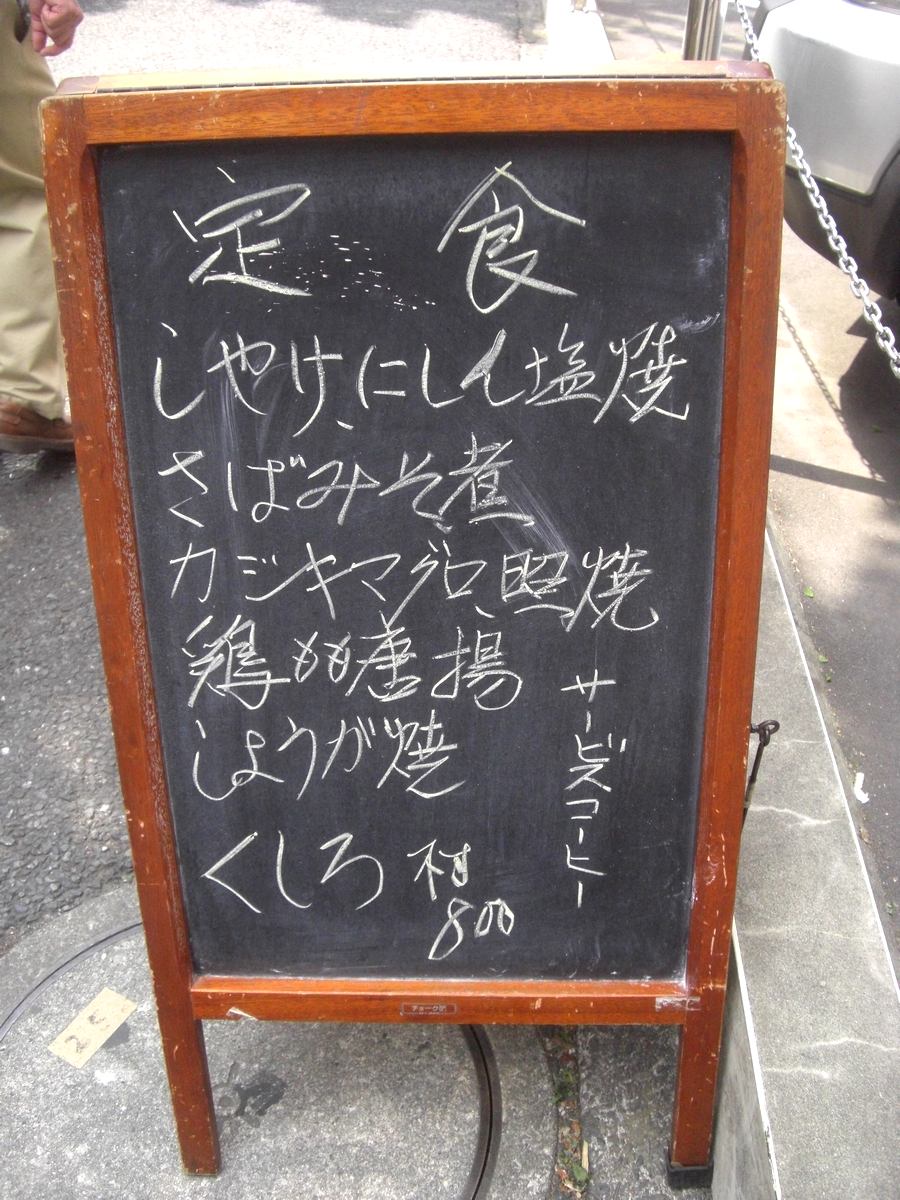 定食
しゃけ、にしん塩焼
さばみそ煮
カジキマグロ、照焼
鶏もも唐揚
しょうが焼
サービスコーヒー
くしろ 村
800
チョーク用